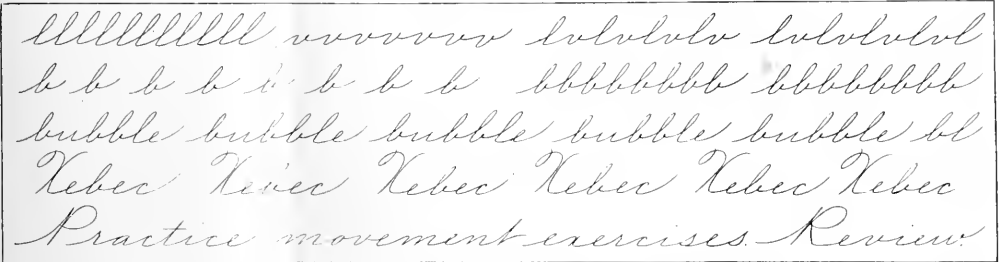 lllllllllll vvvvvvv lvlvlvlv lvlvlvlvl
b b b b b b b b bbbbbbbb bbbbbbbb
bubble bubble bubble bubble bubble bl
Xebec Xebec Xebec Xebec Xebec Xebec
Practice movement exercises. Review.